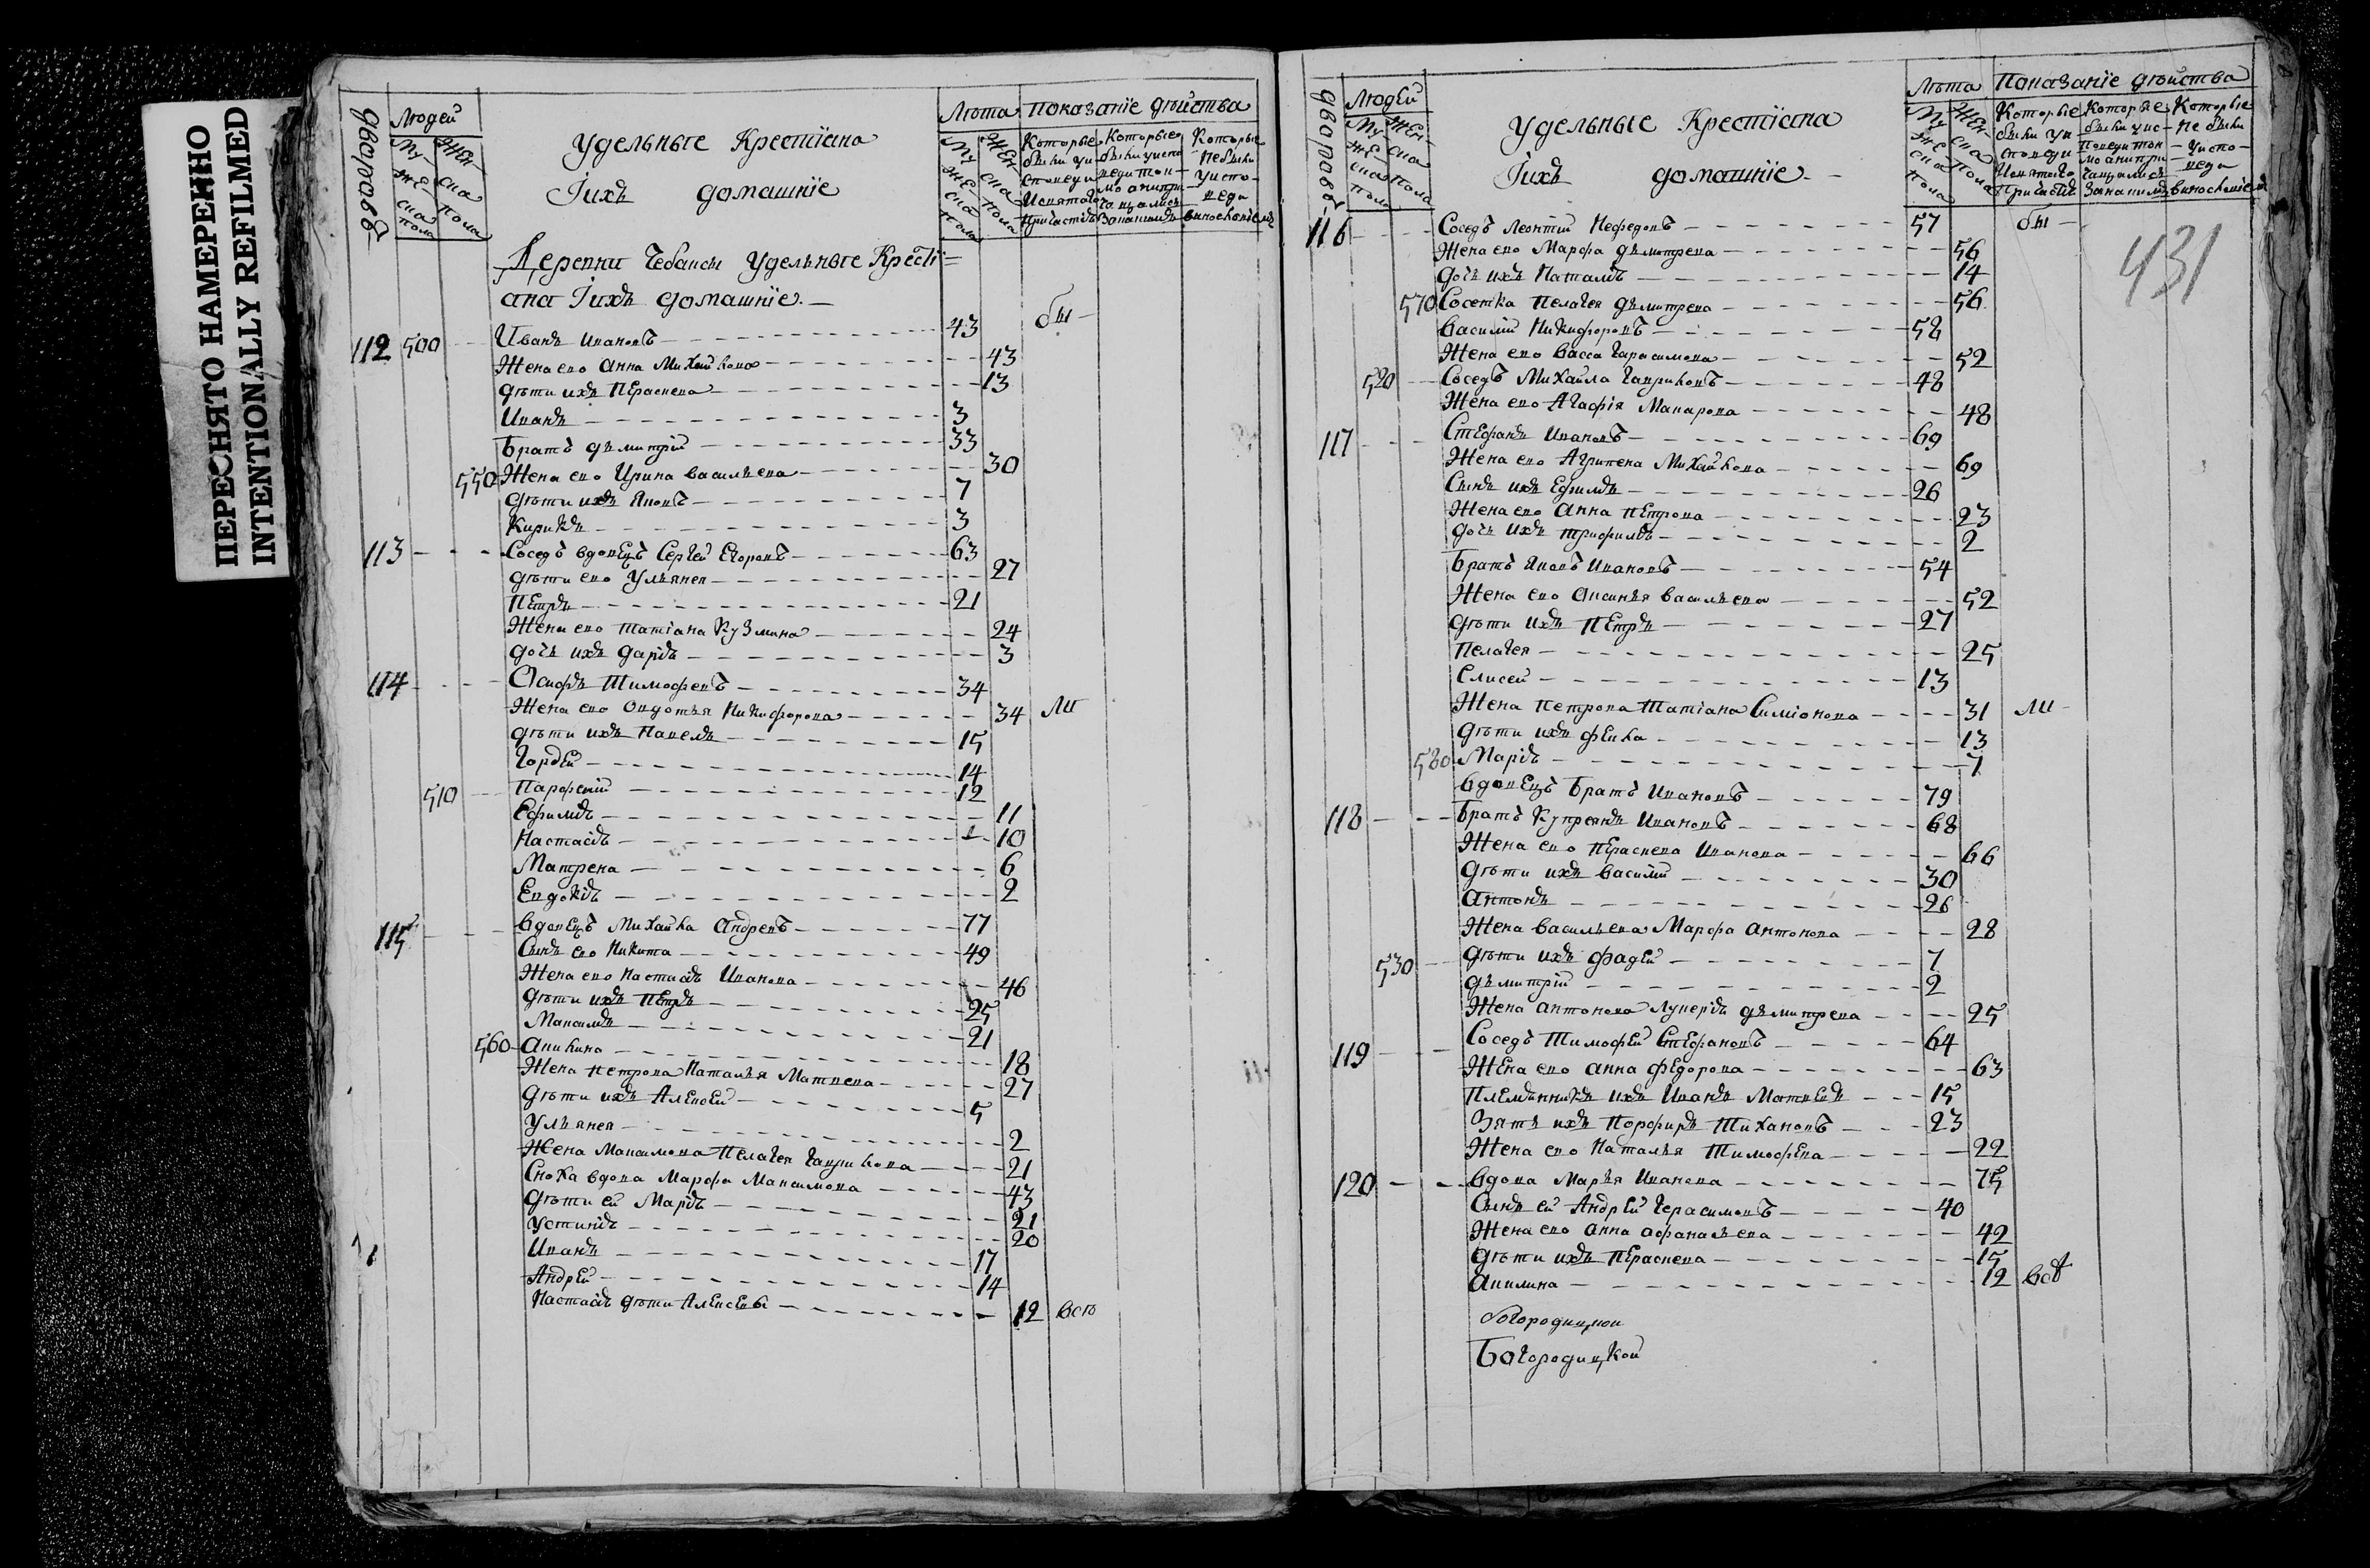 ПЕРЕСНЯТО НАМЕРЕННО
INTENTIONALLY REFILMED
дворовъ
Людей
Мужеска пола
Женска пола
Удельные Крестіана
Іихъ домашніе
Лѣта
Мужеска пола
Женска пола
показаніе дѣйства
Которые были уисповеди исвятого причастія
Которые были уисповеди токмо анипричащались
Которые небыли уисповеди
Деревни Чебаксы Удельные Крестіана Іихъ домашніе
112 500 Иванъ Ивановъ 43 бы
Жена ево Анна Михайлова 43
дѣти ихъ Параскева 13
Иванъ 3
Братъ Дьмитрій 33
550 Жена ево Ирина Васильева 30
дѣти ихъ Яковъ 7
Кирикъ 3
113 Соседъ вдовецъ Сергеи Егоровъ 63
дѣти ево Ульянея 27
Петръ 21
Жена ево Татіана Кузмина 24
дочь ихъ Даріѣ 3
114 Осифъ Тимофеевъ 34
Жена ево Овдотья Никифорова 34 ли
дѣти ихъ Павелъ 15
Гордеи 14
510 Парфеніи 12
Ефиміѣ 11
Настасіѣ 10
Матрена 6
Евдокіѣ 2
115 вдовецъ Михаила Андреевъ 77
Сынъ ево Никита 49
Жена ево Настасіѣ Иванова 46
дѣти ихъ Петръ 25
Максимъ 21
560 Акилина 18
Жена Петрова Наталья Матвеева 27
дѣти ихъ Алексеи 5
Ульянея 2
Жена Максимова Пелагея Гаврилова 21
Сноха вдова Марфа Максимова 43
дѣти еи Маріѣ 21
Устиніѣ 20
Иванъ 17
Андреи 14
Настасіѣ дѣти Алексеевы 12 всѣ
дворовъ
Людей
Мужеска пола
Женска пола
Удельные Крестіана
Іихъ домашніе
Лѣта
Мужеска пола
Женска пола
Показаніе дѣйства
Которые были уисповеди исвятого причастіѣ
Которые были уисповеди токмо анипричащались
Которые не были уисповеди
431
116 Соседъ Леонтіи Нефедовъ 57 бы
Жена ево Марфа Дьмитрева 56
дочь ихъ Наталіѣ 14
570 Соседка Пелагея Дьмитрева 56
Василіи Никифоровъ 58
Жена ево Васса Гарасимова 52
520 Соседъ Михаила Гавриловъ 48
Жена ево Агафія Макарова 48
117 Стефанъ Ивановъ 69
Жена ево Агрипена Михайлова 69
Сынъ ихъ Ефимъ 26
Жена ево Анна Петрова 23
дочь ихъ Трифиліѣ 2
Братъ Яковъ Ивановъ 54
Жена ево Аксинья Васильева 52
дѣти ихъ Петръ 27
Пелагея 25
Елисеи 13
Жена Петрова Татіана Симіонова 31 ли
дѣти ихъ Фекла 13
580 Маріѣ 7
вдовецъ Братъ Ивановъ 79
118 Братъ Купреянъ Ивановъ 68
Жена ево Параскева Иванова 66
дѣти ихъ Василіи 30
Антонъ 26
Жена Васильева Марфа Антонова 28
530 дѣти ихъ Фадеи 7
Дьмитріи 2
Жена Антонова Лукеріѣ Дьмитрева 25
119 Соседъ Тимофеи Стефановъ 64
Жена ево Анна Федорова 63
Племянникъ ихъ Иванъ Матвеевъ 15
Зять ихъ Порфиръ Тихановъ 23
Жена ево Наталья Тимофеева 22
120 вдова Марья Иванова 75
Сынъ еи Андреи Герасимовъ 40
Жена ево Анна Афанасьева 42
дѣти ихъ Параскева 15
Акилина 12 всѣ
Богородицкои
Богородицкои